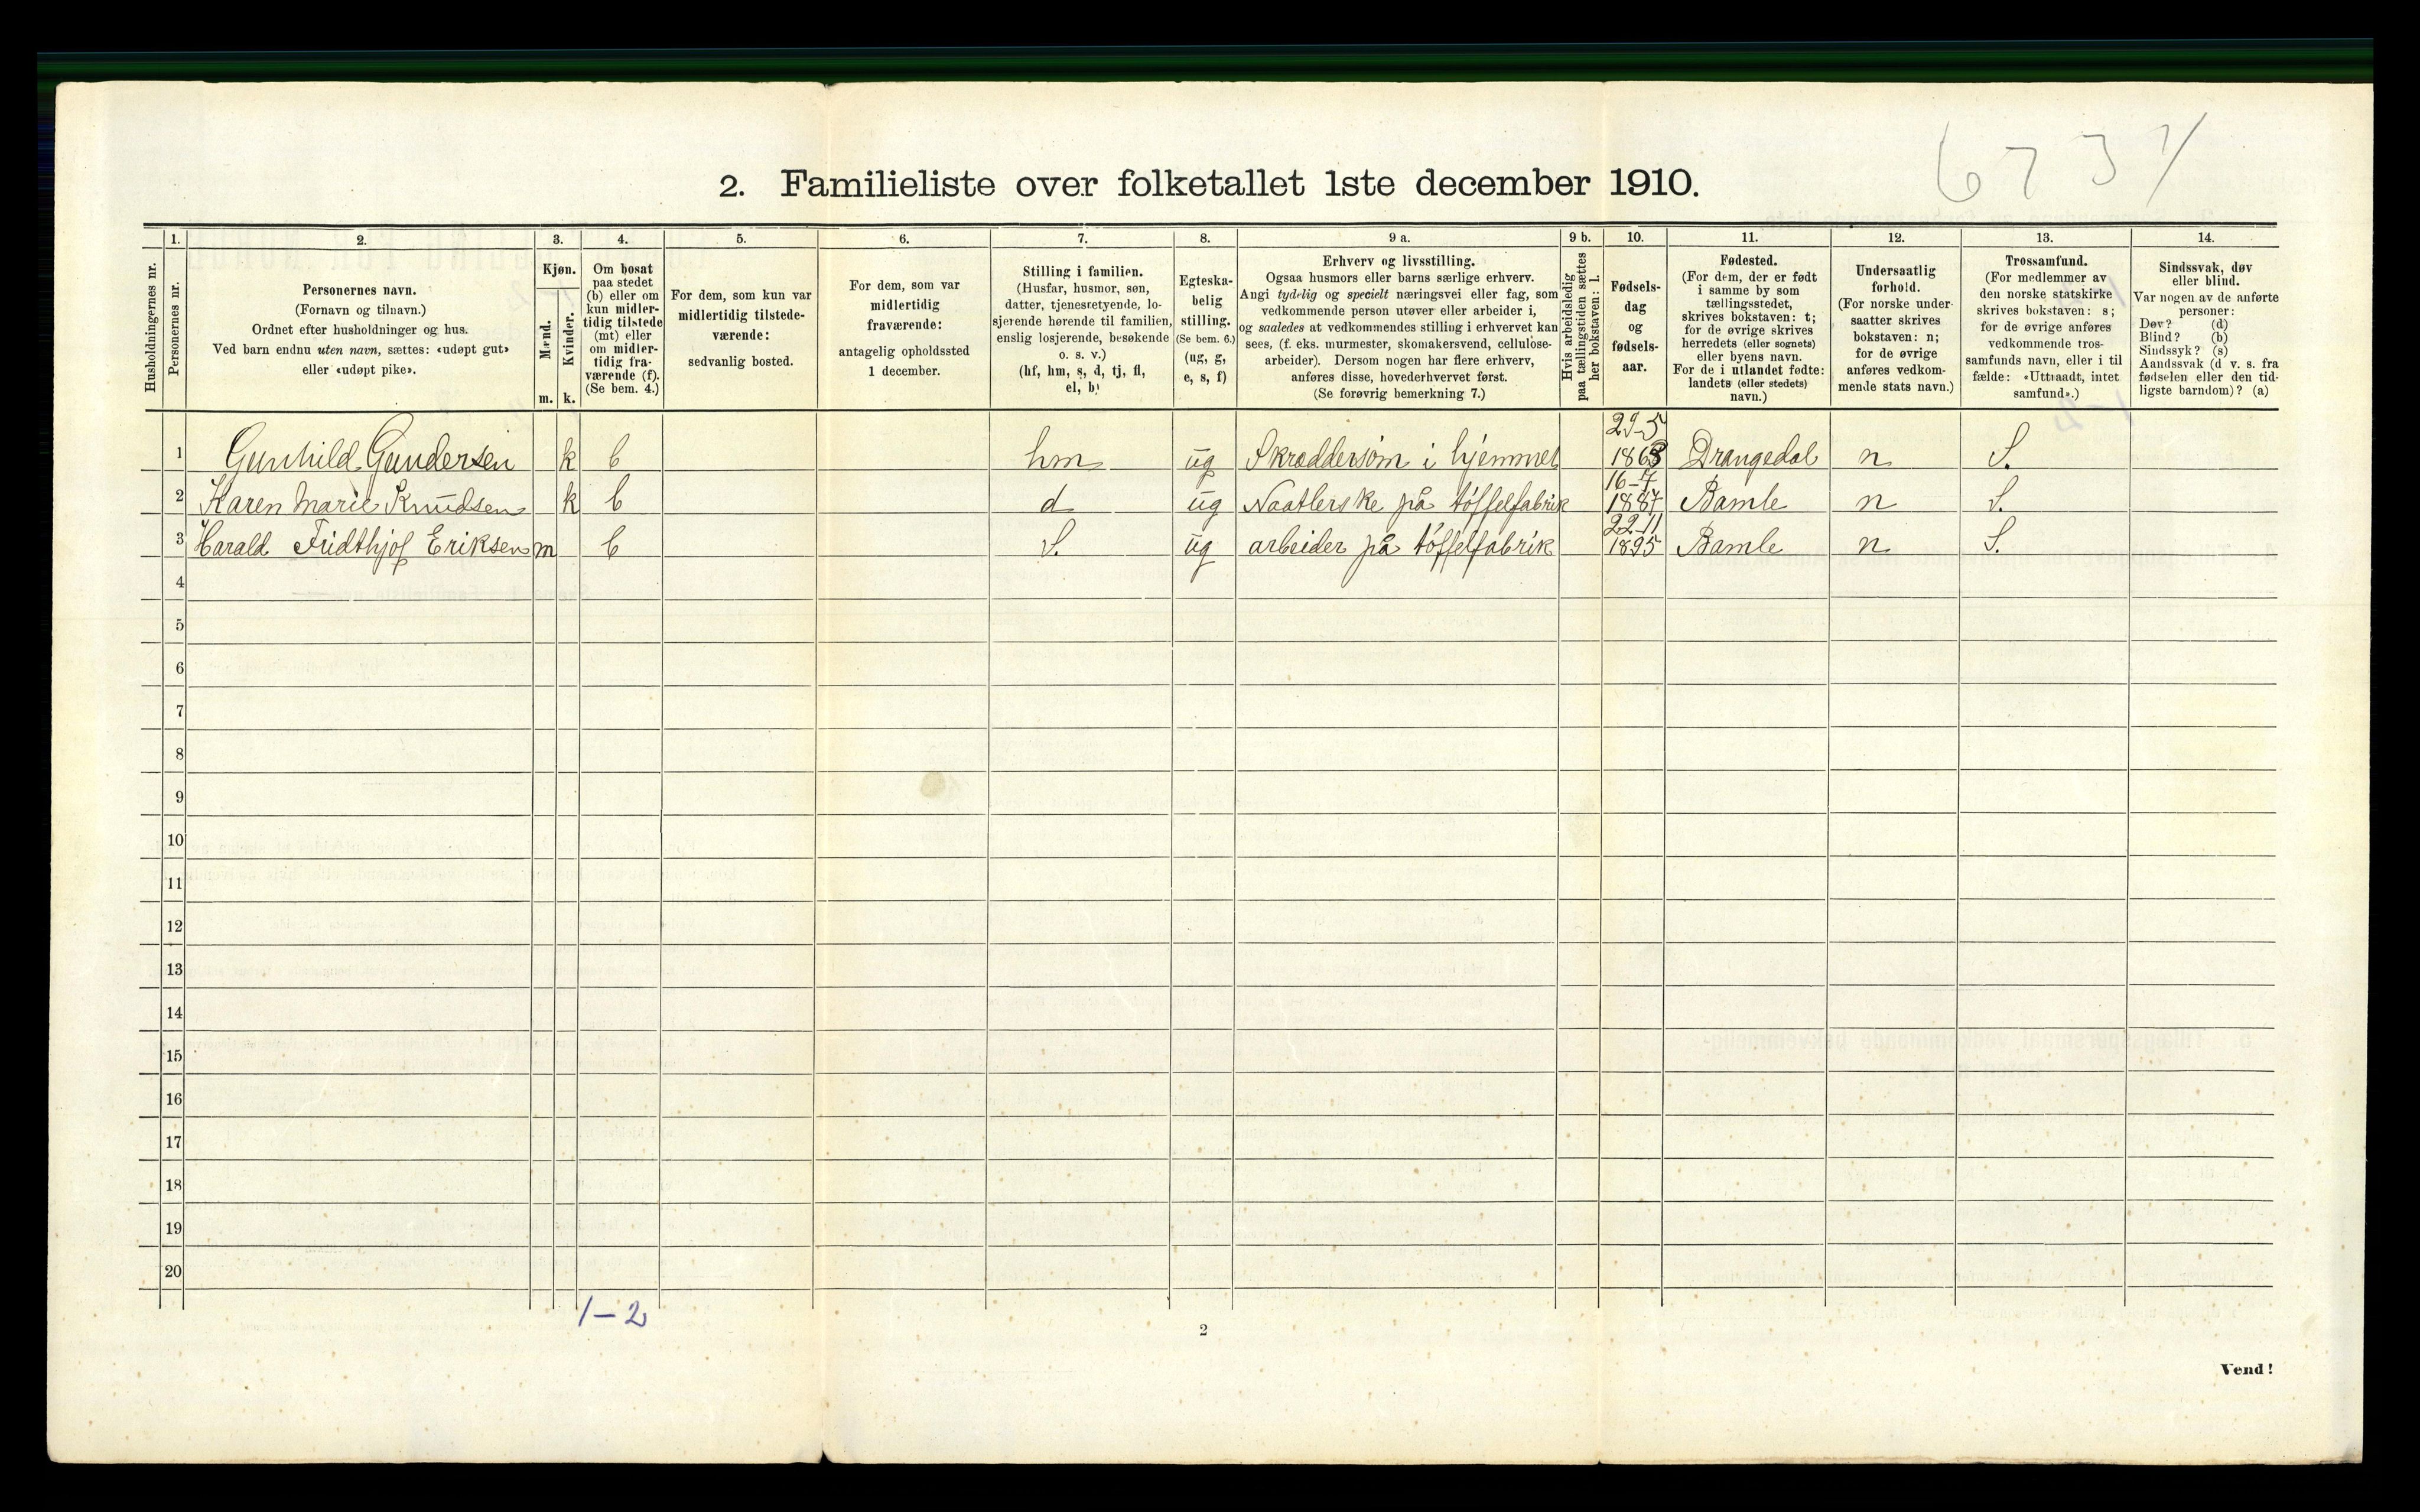 6731
2. Familieliste over folketallet 1ste december 1910.
1. 2. 3. 4. 5. 6. 7. 8. 9 a. 9 b. 10. 11. 12. 13. 14.
Husholdningernes nr.
Personernes nr.
Personernes navn.
(Fornavn og tilnavn.)
Ordnet efter husholdninger og hus.
Ved barn endnu uten navn, sættes: «udøpt gut»
eller «udøpt pike».
Kjøn.
Mænd.
Kvinder.
m. k.
Om bosat
paa stedet
(b) eller om
kun midler-
tidig tilstede
(mt) eller
om midler-
tidig fra-
værende (f).
(Se bem. 4.)
For dem, som kun var
midlertidig tilstede-
værende:
sedvanlig bosted.
For dem, som var
midlertidig
fraværende:
antagelig opholdssted
1 december.
Stilling i familien.
(Husfar, husmor, søn,
datter, tjenesretyende, lo-
sjerende hørende til familien,
enslig losjerende, besøkende
o. s. v.)
(hf, hm, s, d, tj, fl,
el, b)
Egteska-
belig
stilling.
(Se bem. 6.)
(ug, g,
e, s, f)
Erhverv og livsstilling.
Ogsaa husmors eller barns særlige erhverv.
Angi tydelig og specielt næringsvei eller fag, som
vedkommende person utøver eller arbeider i,
og saaledes at vedkommendes stilling i erhvervet kan
sees, (f. eks. murmester, skomakersvend, cellulose-
arbeider). Dersom nogen har flere erhverv,
anføres disse, hovederhvervet først.
(Se forøvrig bemerkning 7.)
Hvis arbeidsledig
paa tællingstiden sættes
her bokstaven: l.
Fødsels-
dag
og
fødsels-
aar.
Fødested.
(For dem, der er født
i samme by som
tællingsstedet,
skrives bokstaven: t;
for de øvrige skrives
herredets (eller sognets)
eller byens navn.
For de i utlandet fødte:
landets (eller stedets)
navn.)
Undersaatlig
forhold.
(For norske under-
saatter skrives
bokstaven: n;
for de øvrige
anføres vedkom-
mende stats navn.)
Trossamfund.
(For medlemmer av
den norske statskirke
skrives bokstaven: s;
for de øvrige anføres
vedkommende tros-
samfunds navn, eller i til
fælde: «Uttraadt, intet
samfund».)
Sindssvak, døv
eller blind.
Var nogen av de anførte
personer:
Døv? (d)
Blind? (b)
Sindssyk? (s)
Aandssvak (d v. s. fra
fødselen eller den tid-
ligste barndom)? (a)
29-5
1 Gunhild Gundersen k b hm ug Skræddersøm i hjemmet 1868 Drangedal n S.
16-7
2 Karen Marie Knudsen k b d ug Naatlerske på tøffelfabrik 1887 Bamle n S.
22-11
3 Harald Fridthjof Eriksen m b S. ug arbeider på tøffelfabrik 1895 Bamle n S.
4
5
6
7
8
9
10
11
12
13
14
15
16
17
18
19
20
1-2
2
Vend!